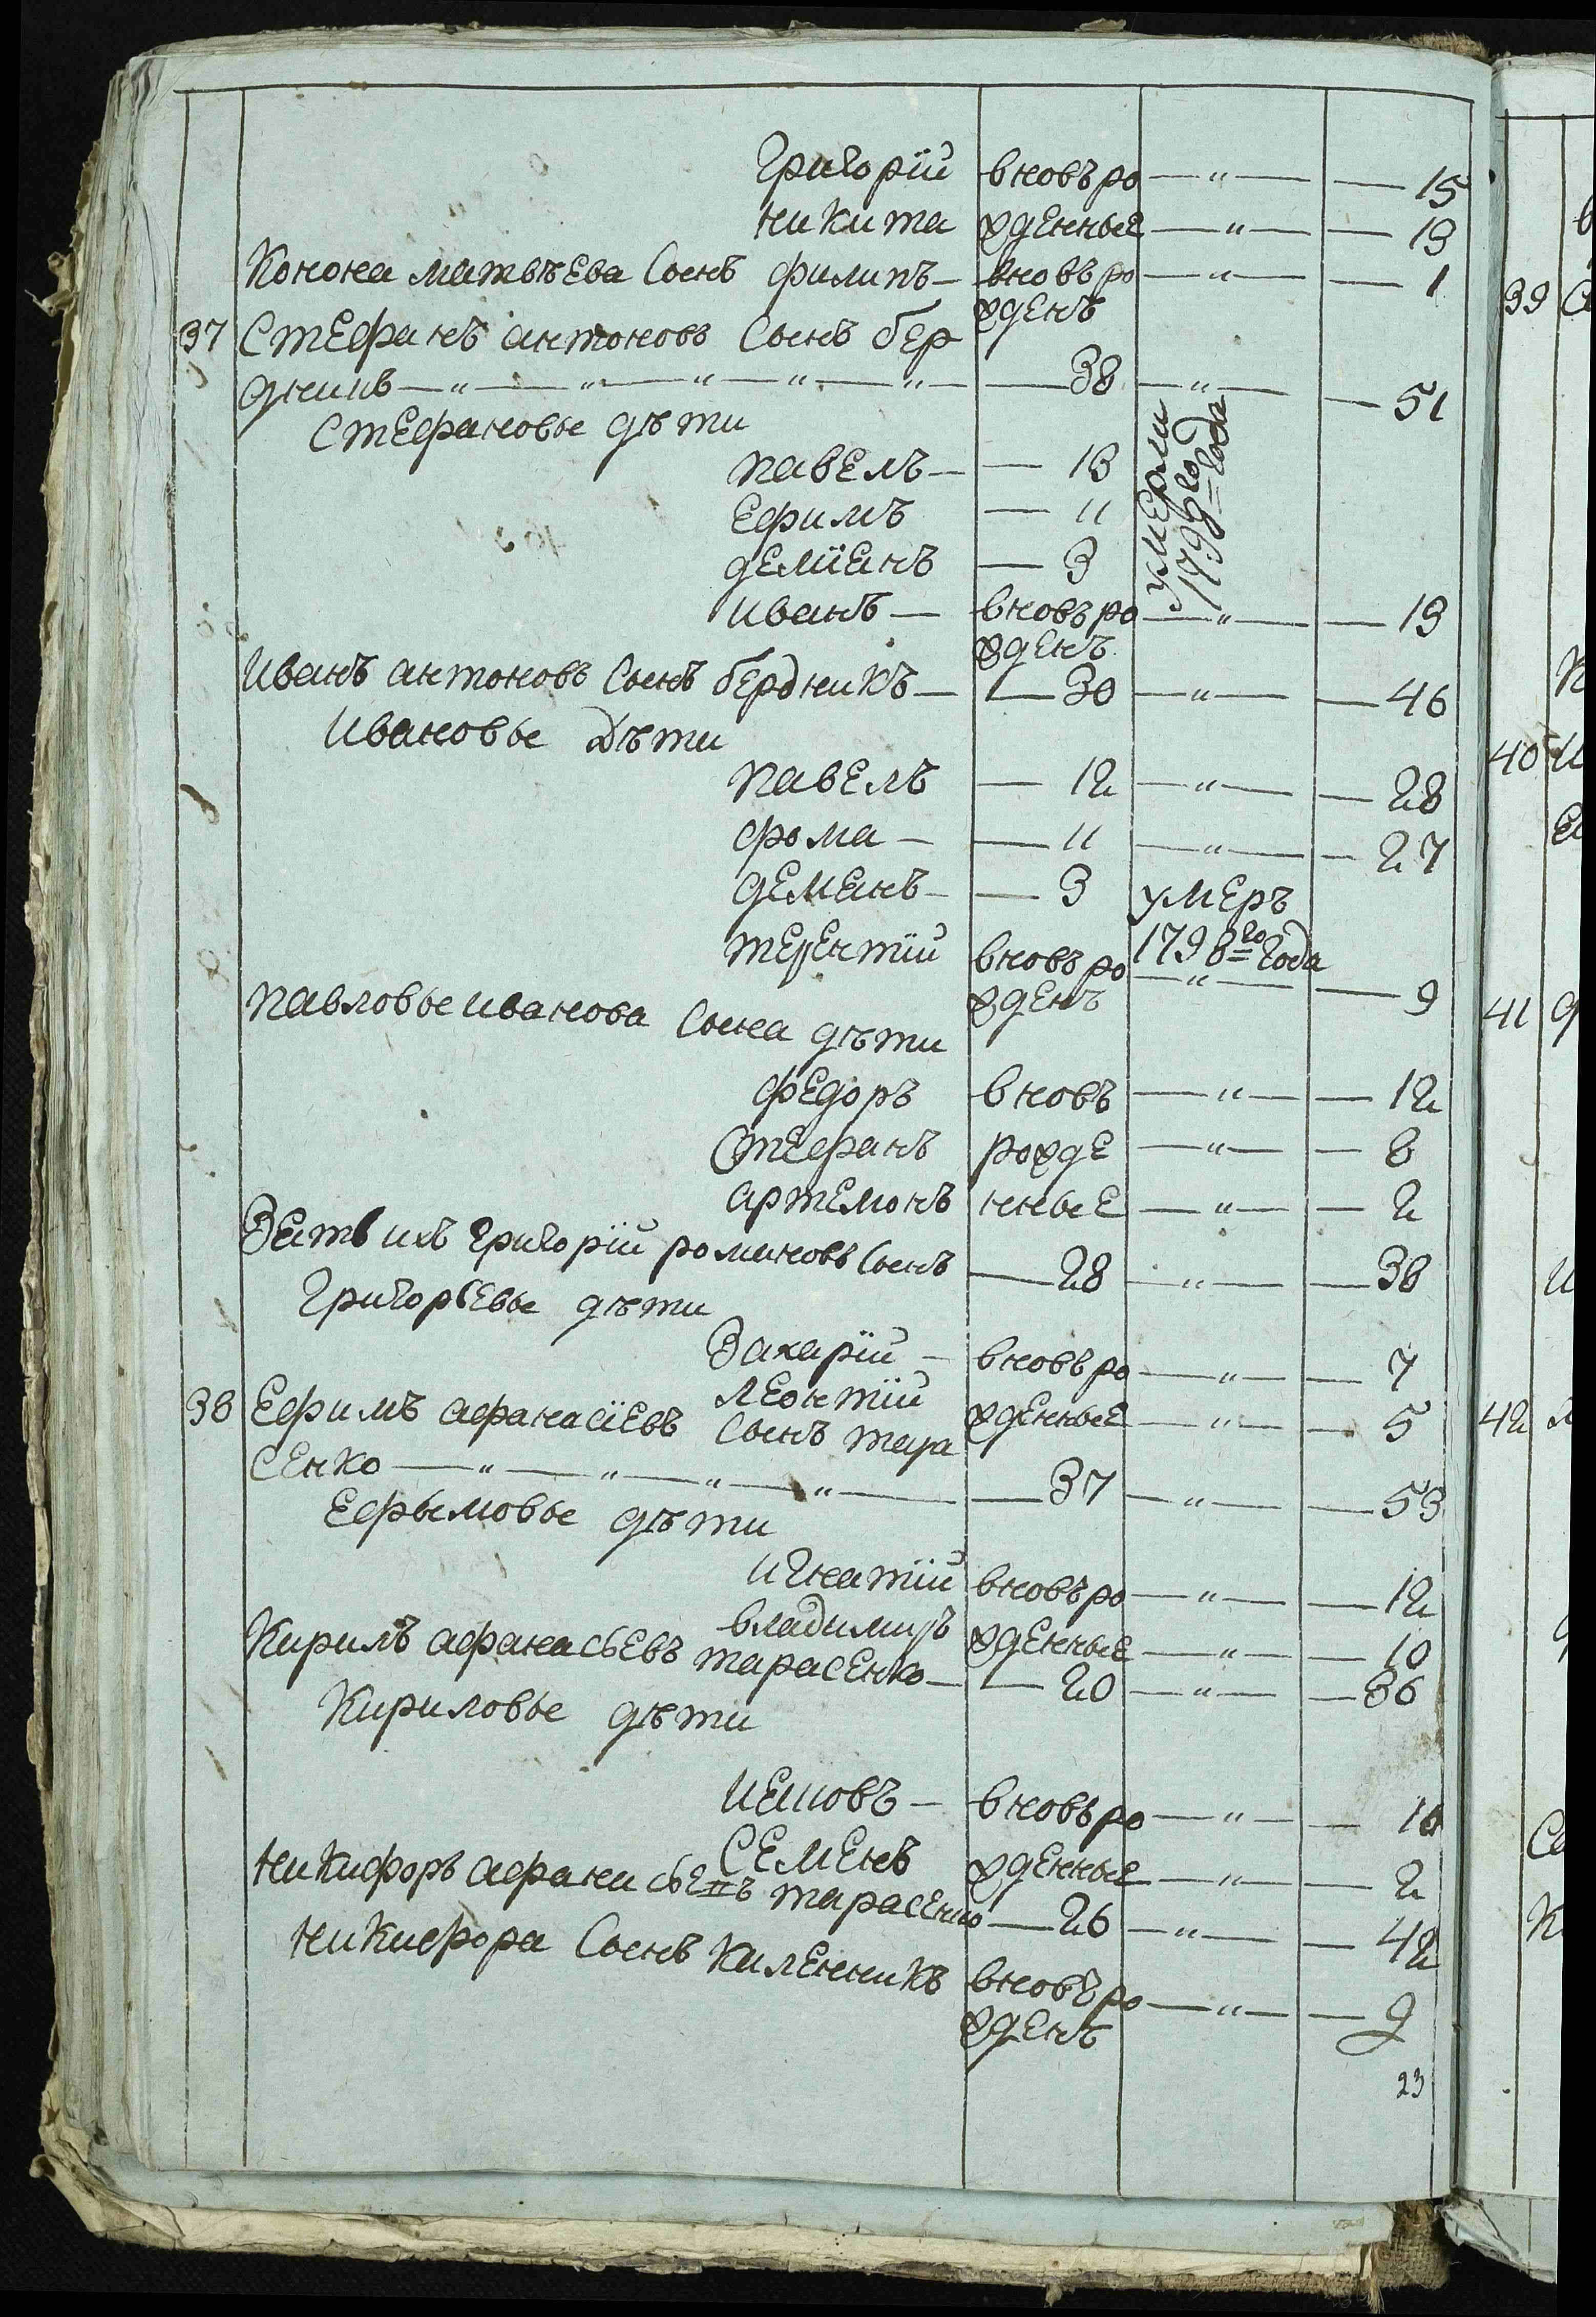 Григорїй вновъ ро — " — — 15
никита жденные — " — — 13
Конона матвѣева сынъ филипъ — вновъ ро — " — — 1
жденъ
37 Стефанъ антоновъ сынъ бер
дникъ — " — " — " — " — " — — 38 — " — — 51
Стефановы дѣти
павелъ — — 13 умерли
Ефимъ — 11 1798го года
демїанъ — 3
иванъ — вновъ ро — " — — 13
жденъ
Иванъ антоновъ сынъ бердникъ — — 30 — " — — 46
Ивановы дѣти
павелъ — 12 — " — — 28
фома — — 11 — " — — 27
деманъ — — 3 умеръ
1798го года
терентїй вновъ ро — " — — 9
жденъ
павловы иванова сына дѣти
федоръ вновъ — " — — 12
Стефанъ рожде — " — — 8
артемонъ нные — " — — 2
Зять ихъ григорїй романовъ сынъ — 28 — " — — 38
Григорьевы дѣти
Захарїй — вновъ ро — " — — 7
леонтїй жденные — " — — 5
38 Ефимъ афанасїевъ сынъ тара
сенко — " — " — " — " — — 37 — " — — 53
Ефымовы дѣти
игнатїй вновъ ро — " — — 12
владимиръ жденные — " — — 10
Кирилъ афанасьевъ тарасенко — — 20 — " — — 36
Кириловы дѣти
вновъ ро — " — — 10
Семенъ жденные — " — — 2
никифоръ афанасьевъ тарасенко — 26 — " — — 42
никифора сынъ каленникъ вновъ ро — " — — 9
жденъ
23
39
40
41
42